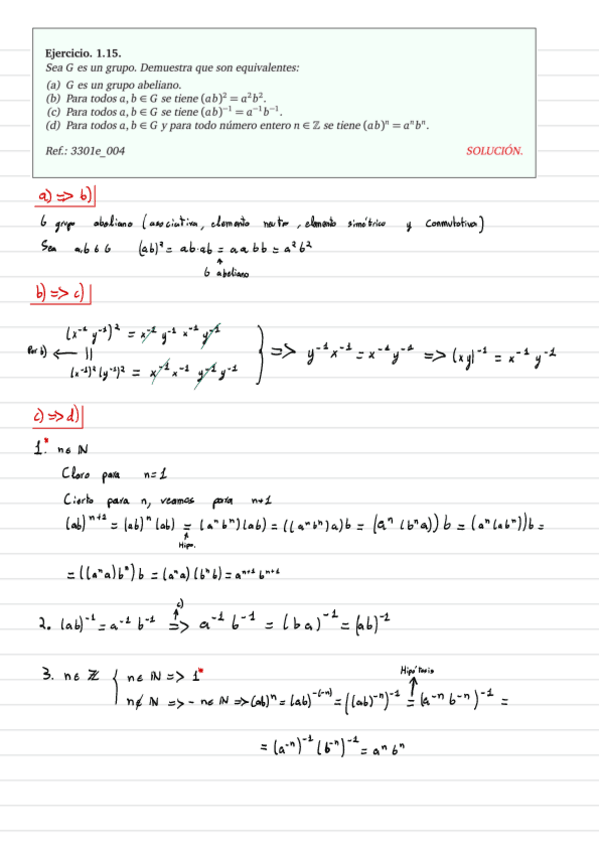 Ejercicio. 1.15.
Sea G es un grupo. Demuestra que son equivalentes:
(a) G es un grupo abeliano.
(b) Para todos a, b ∈ G se tiene (ab)² = a²b².
(c) Para todos a, b ∈ G se tiene (ab)⁻¹ = a⁻¹b⁻¹.
(d) Para todos a, b ∈ G y para todo número entero n ∈ ℤ se tiene (ab)ⁿ = aⁿbⁿ.
Ref.: 3301e_004 SOLUCIÓN.
a) => b)
G grupo abeliano (asociativa, elemento neutro, elemento simétrico y conmutativa)
Sea a,b ∈ G (ab)² = ab·ab = aabb = a²b²
G abeliano
b) => c)
(x⁻¹y⁻¹)² = x⁻¹ y⁻¹ x⁻¹ y⁻¹
Por b) ← || => y⁻¹x⁻¹ = x⁻¹y⁻¹ => (xy)⁻¹ = x⁻¹y⁻¹
(x⁻¹)²(y⁻¹)² = x⁻¹x⁻¹ y⁻¹y⁻¹
c) => d)
1.* n ∈ ℕ
Claro para n=1
Cierto para n, veamos para n+1
(ab)ⁿ⁺¹ = (ab)ⁿ(ab) = (aⁿbⁿ)(ab) = ((aⁿbⁿ)a)b = (aⁿ(bⁿa))b = (aⁿ(abⁿ))b =
Hipo.
= ((aⁿa)bⁿ)b = (aⁿa)(bⁿb) = aⁿ⁺¹bⁿ⁺¹
c)
2. (ab)⁻¹ = a⁻¹b⁻¹ => a⁻¹b⁻¹ = (ba)⁻¹ = (ab)⁻¹
Hipótesis
3. n ∈ ℤ { n ∈ ℕ => 1*
n ∉ ℕ => -n ∈ ℕ => (ab)ⁿ = (ab)⁻⁽⁻ⁿ⁾ = ((ab)⁻ⁿ)⁻¹ = (a⁻ⁿb⁻ⁿ)⁻¹ =
= (a⁻ⁿ)⁻¹(b⁻ⁿ)⁻¹ = aⁿbⁿ